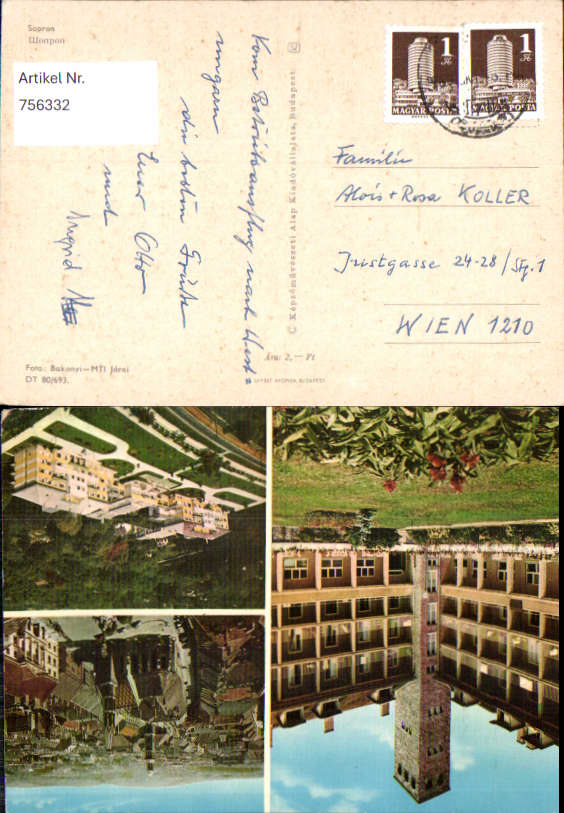 Sopron
Шопрон
Artikel Nr.
756332
Vom Betriebsausflug nach West=
ungarn
die besten Grüße
Euer Otto
und
Ingrid
Foto: Bakonyi—MTI Járai
DT 80/693.
C Képzőművészeti Alap Kiadóvállalata, Budapest
Ára: 2,— Ft
1 Ft
MAGYAR POSTA
1 Ft
MAGYAR POSTA
Familie
Alois + Rosa KOLLER
Justgasse 24-28/Stg. 1
WIEN 1210